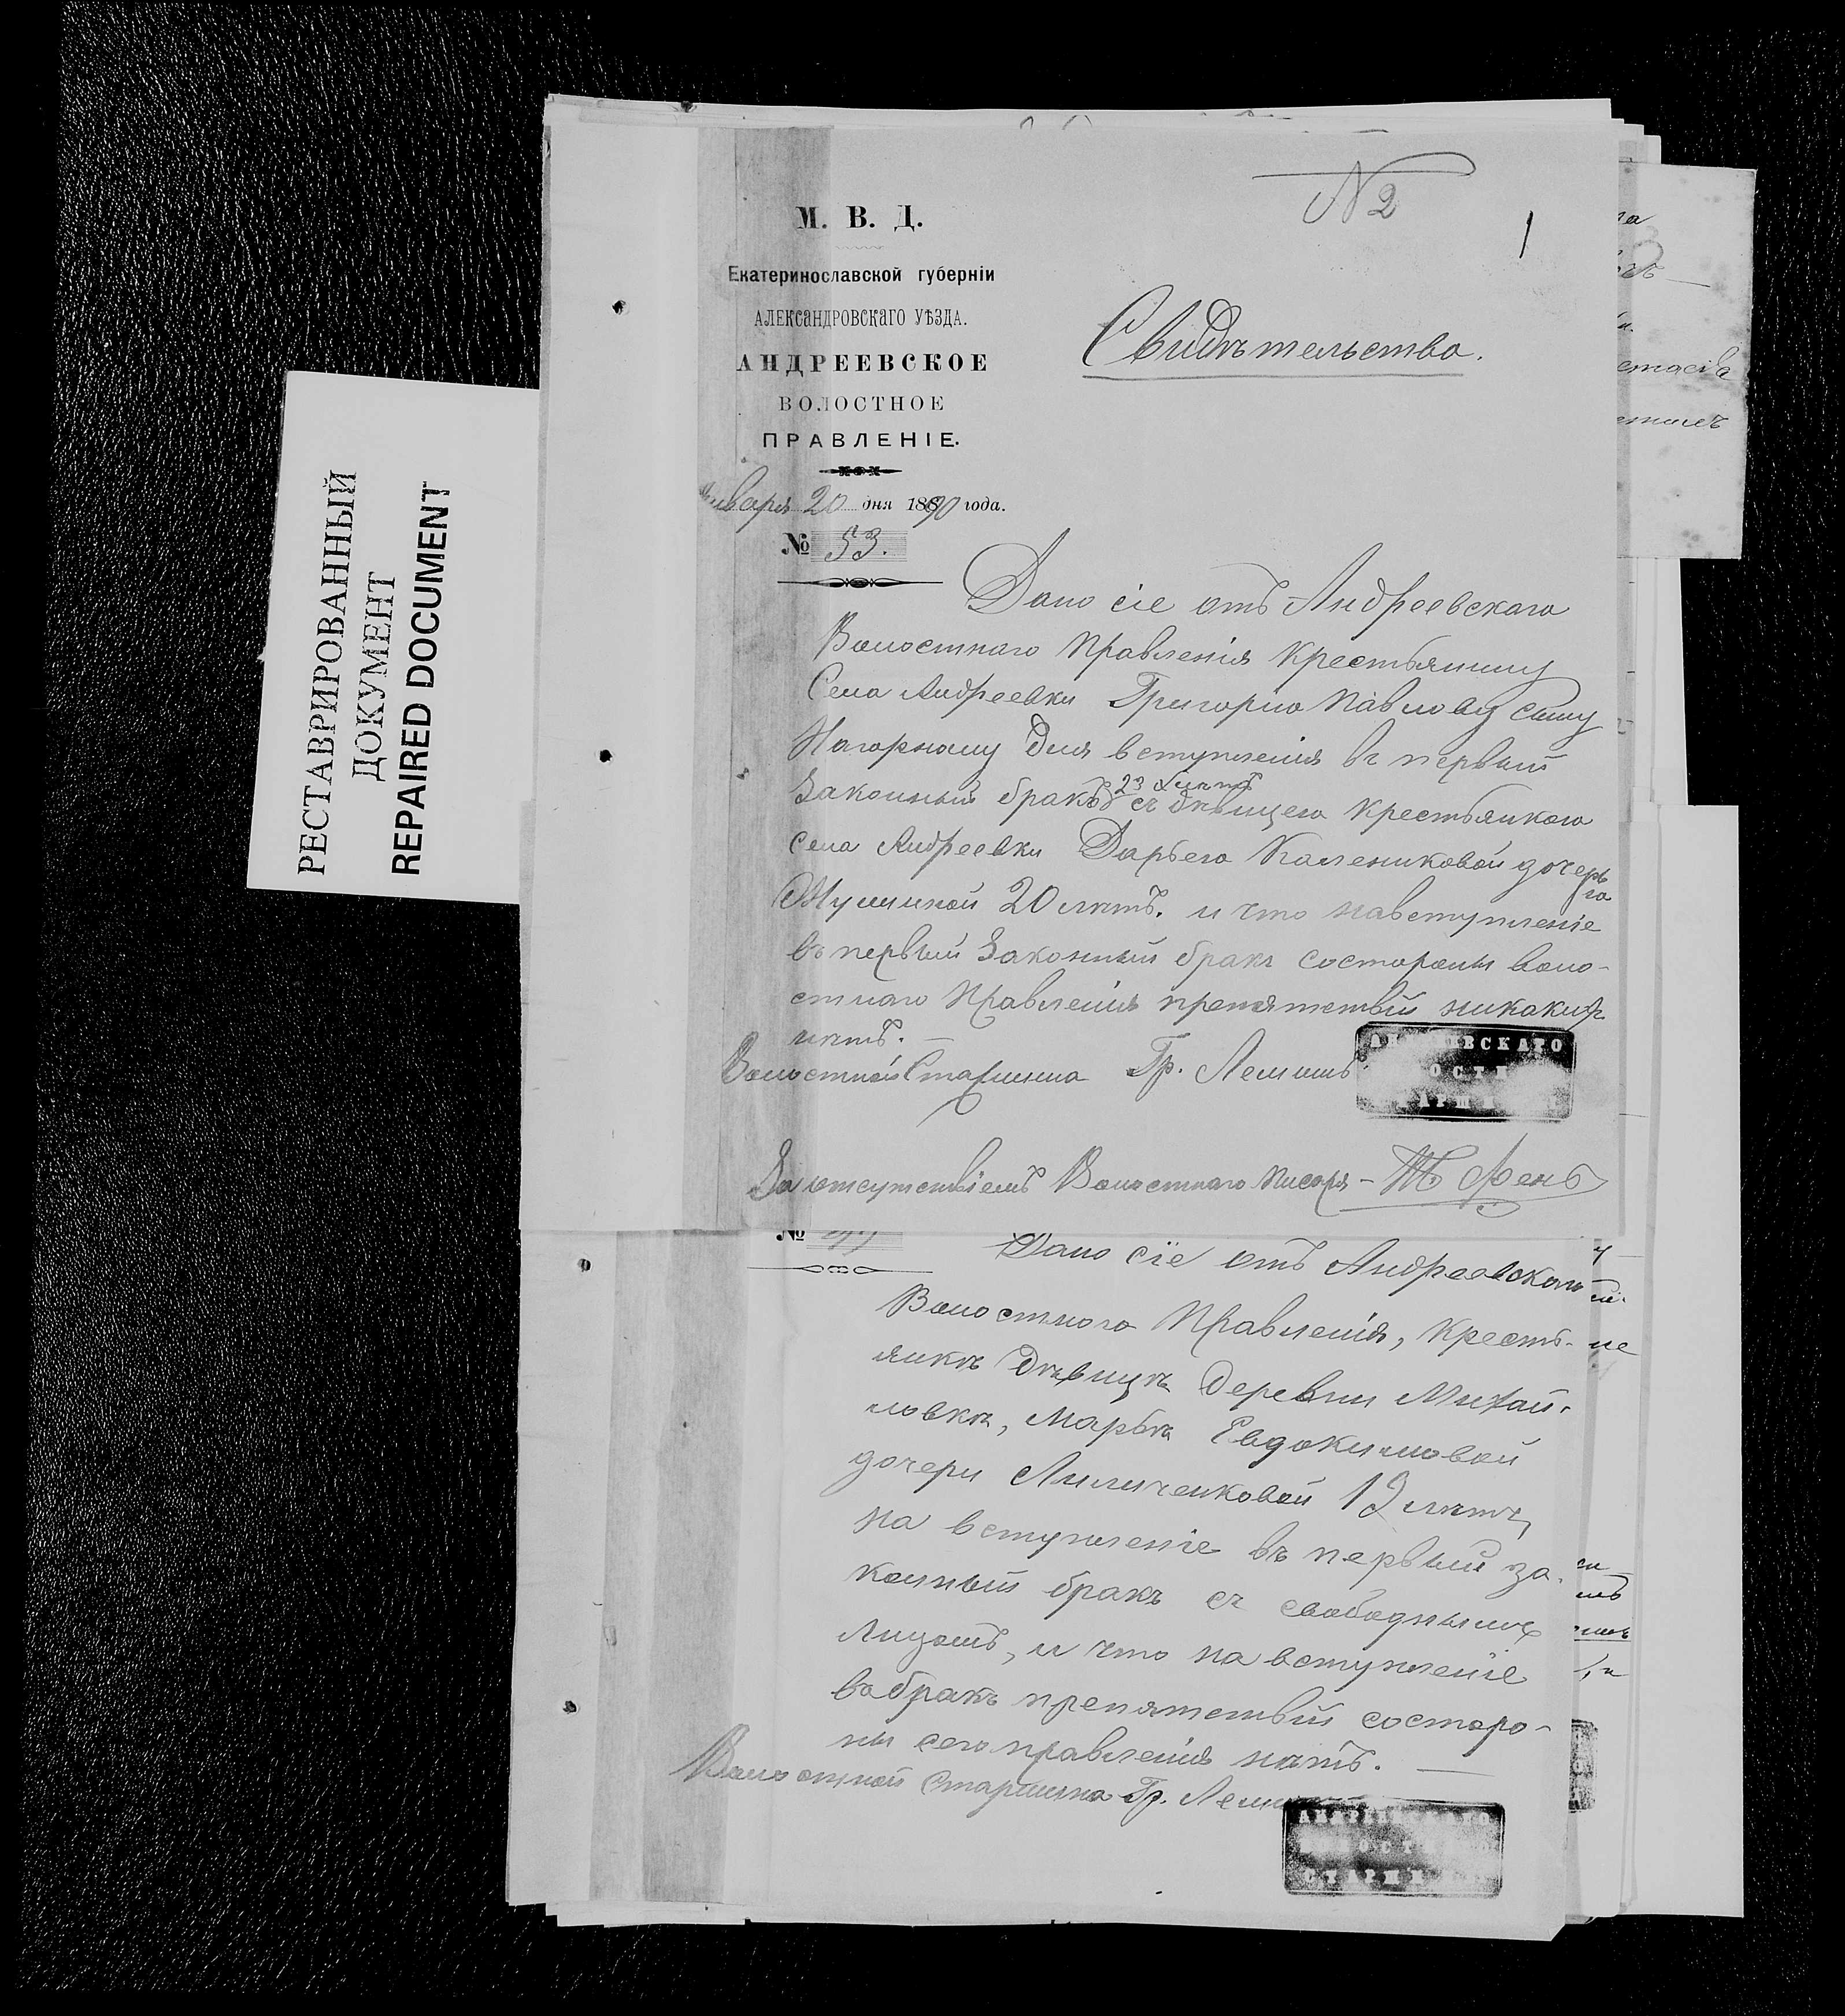 РЕСТАВРИРОВАННЫЙ
ДОКУМЕНТ
REPAIRED DOCUMENT
N 2
1
М. В. Д.
Екатеринославской губерніи
АЛЕКСАНДРОВСКАГО УѢЗДА.
АНДРЕЕВСКОЕ
ВОЛОСТНОЕ
ПРАВЛЕНІЕ.
Января 20 дня 1890 года.
№ 53.
Свидѣтельство.
Дано сіе отъ Андреевскаго
Волостнаго Правленія Крестьянину
Села Андреевки Григорію Павлову сыну
Нагорному для вступленія въ первый
Законный бракъ 23 лѣтъ съ дѣвицею Крестьянкою
села Андреевки Дарьею Калениковой дочерью
20 лѣтъ. и что навступленіе
въ первый Законный бракъ состороны воло-
стнаго Правленія препятствій никакихъ
нѣтъ. —
Волостной Старшина Гр.
АНДРЕЕВСКАГО
За отсутствіемъ Волостнаго Писаря –
№
Дано сіе отъ Андреевскаго
Волостного Правленія, Кресть-
янкѣ Дѣвицѣ Деревни Михай-
ловки, Марьѣ Евдокимовой
дочери 19 лѣтъ,
на вступленіе въ первый за-
конный бракъ съ свободнымъ
лицомъ, и что на вступленіе
въ бракъ препятствій состоро-
ны сего правленія нѣтъ. —
Волостной Старшина Гр.
СТАРШИНА